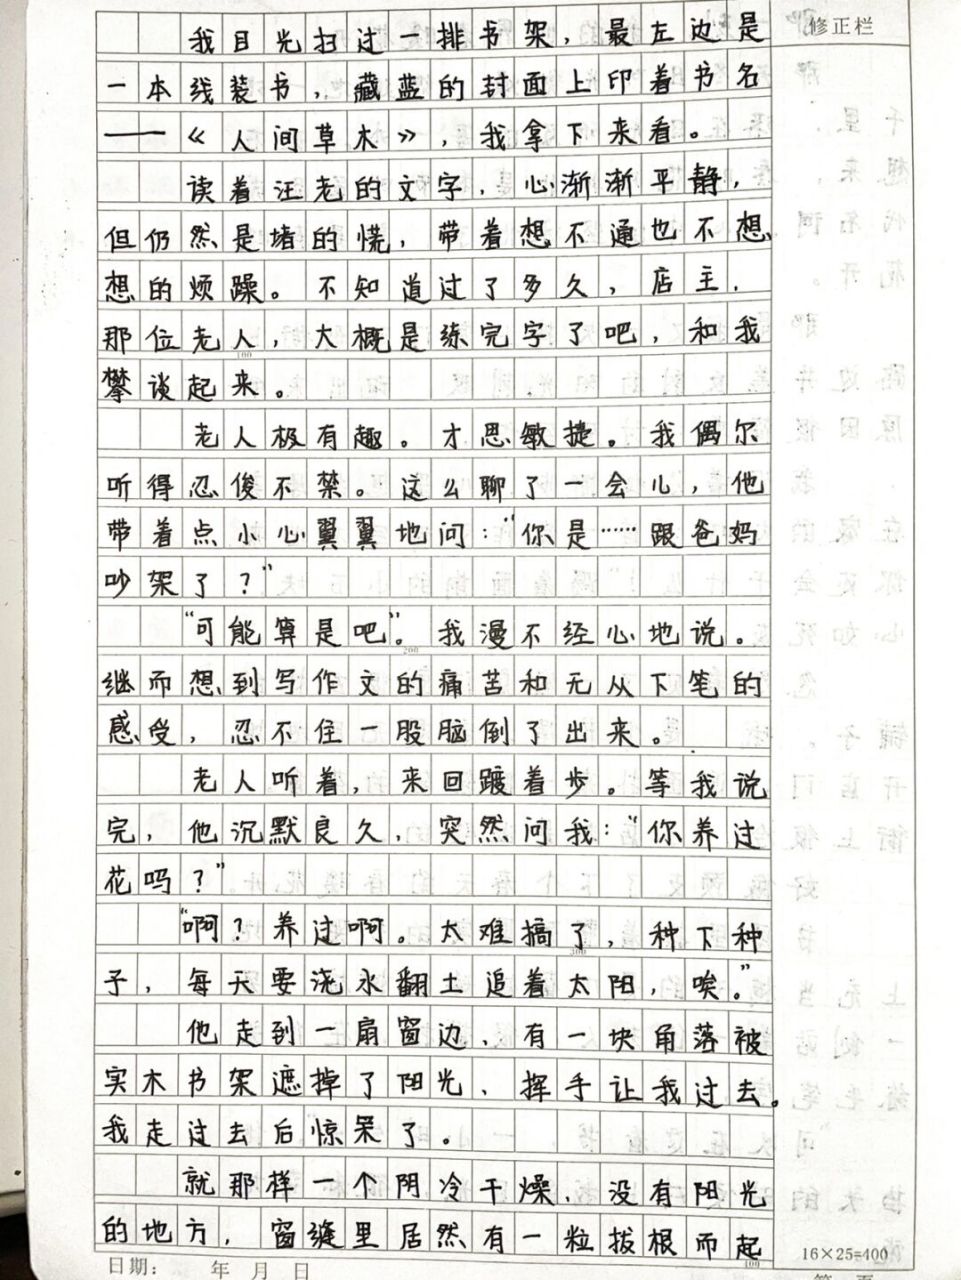 我目光扫过一排书架，最左边是
修正栏
一本线装书，藏蓝的封面上印着书名
——《人间草木》，我拿下来看。
读着汪老的文字，心渐渐平静，
但仍然是堵的慌，带着想不通也不想
想的烦躁。不知道过了多久，店主，
那位老人，大概是练完字了吧，和我
100
攀谈起来。
老人极有趣。才思敏捷。我偶尔
听得忍俊不禁。这么聊了一会儿，他
带着点小心翼翼地问：“你是……跟爸妈
吵架了？”
“可能算是吧”。我漫不经心地说。
200
继而想到写作文的痛苦和无从下笔的
感受，忍不住一股脑倒了出来。
老人听着，来回踱着步。等我说
完，他沉默良久，突然问我：“你养过
花吗？”
“啊？养过啊。太难搞了，种下种
300
子，每天要浇水翻土追着太阳，唉。”
他走到一扇窗边、有一块角落被
实木书架遮掉了阳光、挥手让我过去。
我走过去后惊呆了。
就那样一个阴冷干燥、没有阳光
的地方，窗缝里居然有一粒拔根而起
400
16×25=400
日期： 年 月 日